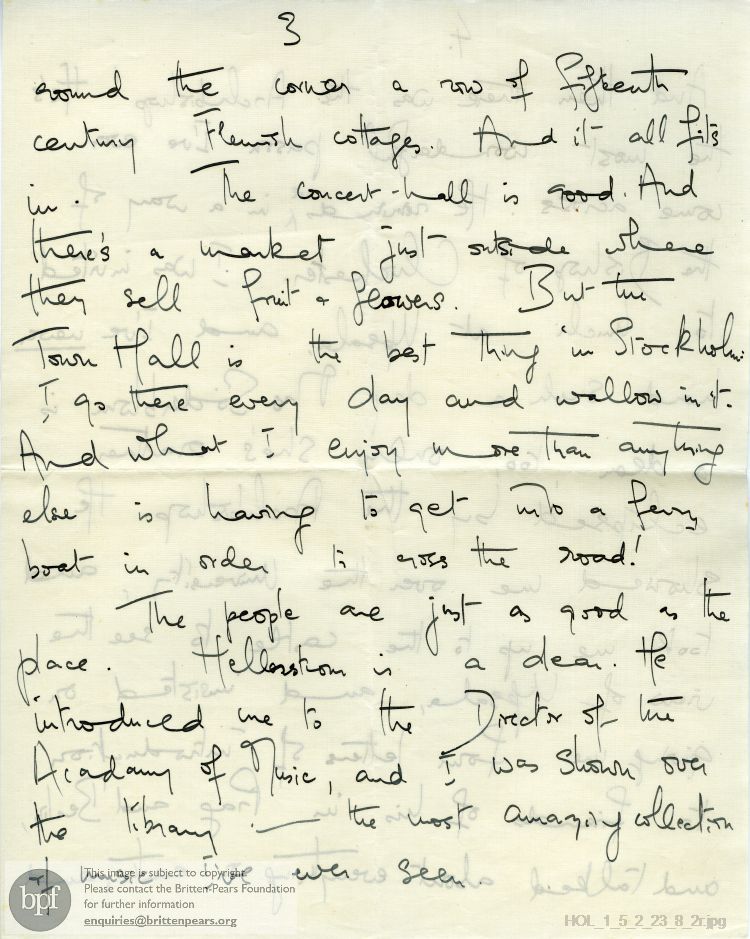 3
round the corner a row of fifteenth
century Flemish cottages. And it all fits
in. The concert-hall is good. And
there's a market just outside where
they sell fruit & flowers. But the
Town Hall is the best thing in Stockholm.
I go there every day and wallow in it.
And what I enjoy more than anything
else is having to get into a ferry
boat in order to cross the road!
The people are just as good as the
place. Hellsstrom is a dear. He
introduced me to the Director of the
Academy of Music, and I was shown over
the library — the most amazing collection
of music I've ever seen.
This image is subject to copyright.
Please contact the Britten-Pears Foundation
for further information
enquiries@brittenpears.org
bpf
HOL_1_5_2_23_8_2r.jpg